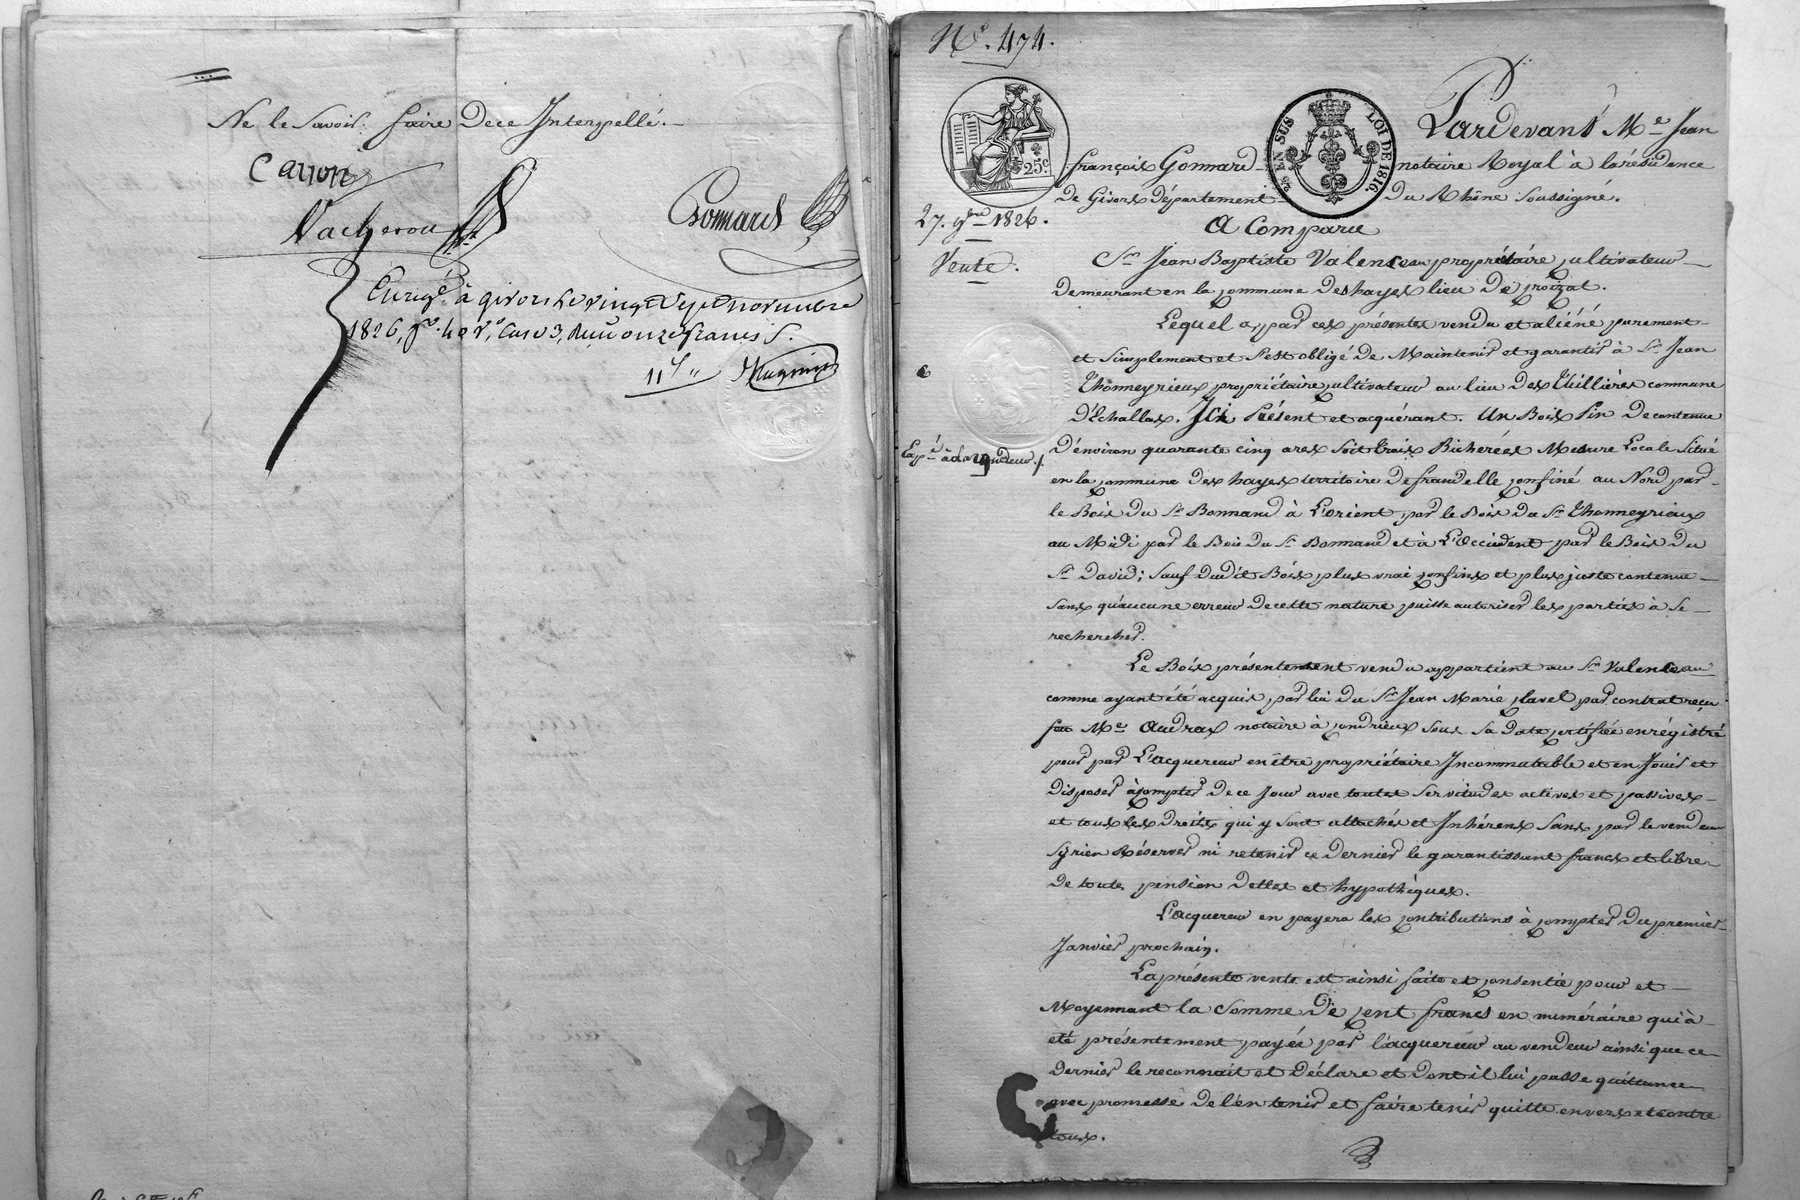 Ne le Savoir faire De ce Interpellé.
Carron
Vacheron
Gonnard
Enregé à givors le vingt Sept novembre
1826, fo. 40 vo, Case 3, Reçu onze francs S.
11f "
No. 474.
25c.
25 EN SUS
LOI DE 1816.
Pardevant Me Jean
françois Gonnard notaire Royal à la résidence
De Givors Département Du Rhône Soussigné.
27. 9bre 1826.
Vente.
A Comparu
Sr Jean Baptiste Valenceau propriétaire cultivateur
demeurant en la commune Des hayes lieu De
Lequel a par ces présentes vendu et aliéné purement
et Simplement et S'est obligé De Maintenir et garantir à Sr Jean
Thonneyrieux propriétaire cultivateur au lieu Des Thillières commune
D'Echallas. Ici Présent et acquérant. Un Bois Pin De contenue
D'environ quarante cinq ares Soit trois Bicherées Mesure Locale Situé
Expé à l'acquéreur
en la commune Des hayes territoire De frandelle confiné au Nord par
le Bois Du Sr Bonnand à L'orient par le Bois Du Sr Thonneyrieux
au Midi par le Bois Du Sr Bonnand et à L'Occident par le Bois Du
Sr David; Sauf Dudit Bois plus vrai confins et plus juste contenue
Sans qu'aucune erreur De cette nature puisse autoriser les parties à Se
rechercher.
Le Bois présentement vendu appartient au Sr Valenceau
comme ayant été acquis par lui du Sr Jean Marie Clavel par contrat reçu
feu Me Audras notaire à Condrieux Sous Sa Date certifiée enrégistré
pour par L'acquereur en être propriétaire Incommutable et en Jouir et
Disposer à compter De ce Jour avec toutes Servitudes actives et passives
et tous les Droits qui y Sont attachés et Inhérens Sans par le vendeur
S'y rien Réserver ni retenir ce Dernier le garantissant franc et libre
De toute pension Dettes et hypothèques.
L'acquereur en payera les contributions à compter Du premier
Janvier prochain.
La présente vente est ainsi faite et consentie pour et
Moyennant la Somme De cent francs en numéraire qui à
été présentement payée par l'acquereur au vendeur ainsi que ce
Dernier le reconnait et Déclare et Dont il lui passe quittance
avec promesse De l'en tenir et faire tenir quitte envers et contre
tous.